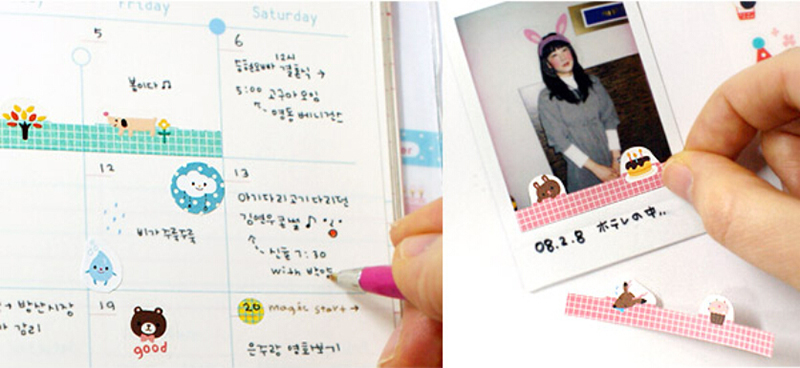 Friday
Saturday
5
6
봄이다 ♫
12시
결혼식 →
5:00 고구마 모임
명동 베니건스
12
13
비가 주룩주룩
아기다리고기다리던
7:30
with
방산시장
19
good
20 magic start →
은주랑 영화보기
08.2.8 ホテレの中..